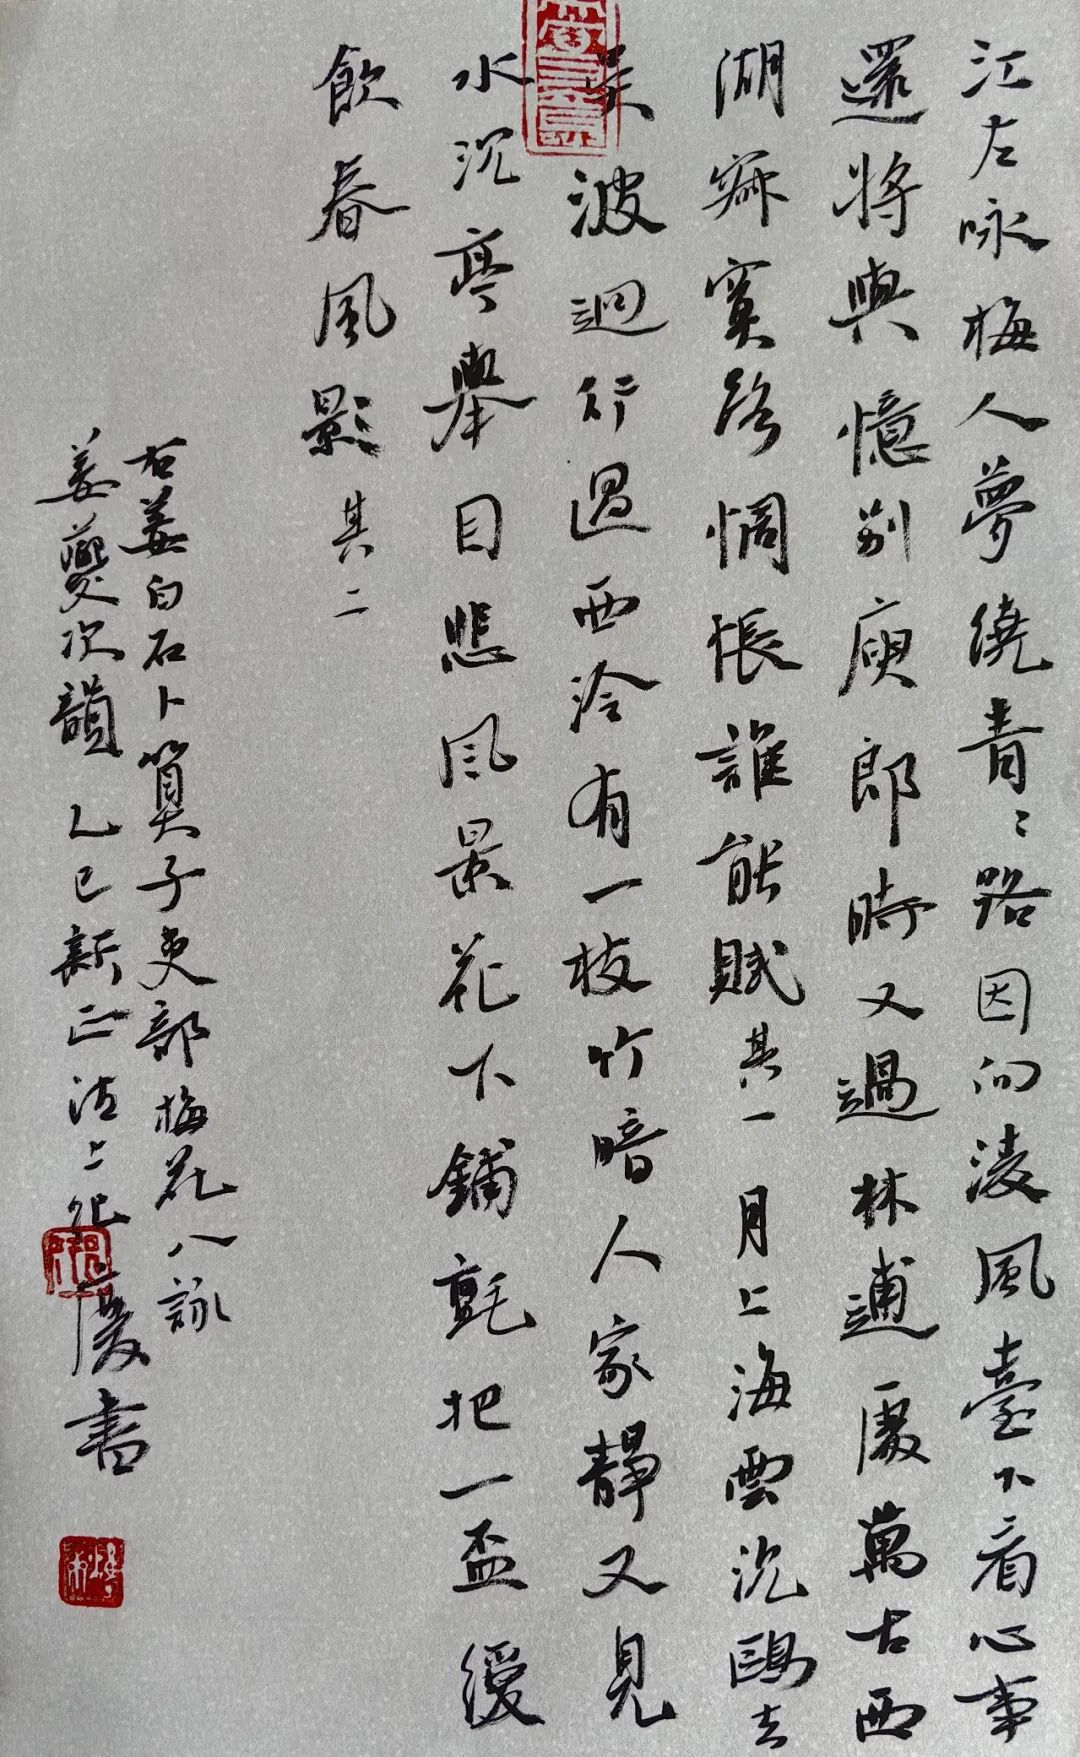 江左咏梅人夢繞青〻路因向淩風臺下看心事
還將與憶别庾郎時又過林逋處萬古西
湖寂寞路惆悵誰能賦其一月上海雲沉鷗去
吴波迴行過西泠有一枝竹暗人家靜又見
水沉亭舉目悲風景花下鋪氈把一盃緩
飲春風影其二
右姜白石卜算子吏部梅花八詠
姜夔次韻乙巳新正沽上 慶書